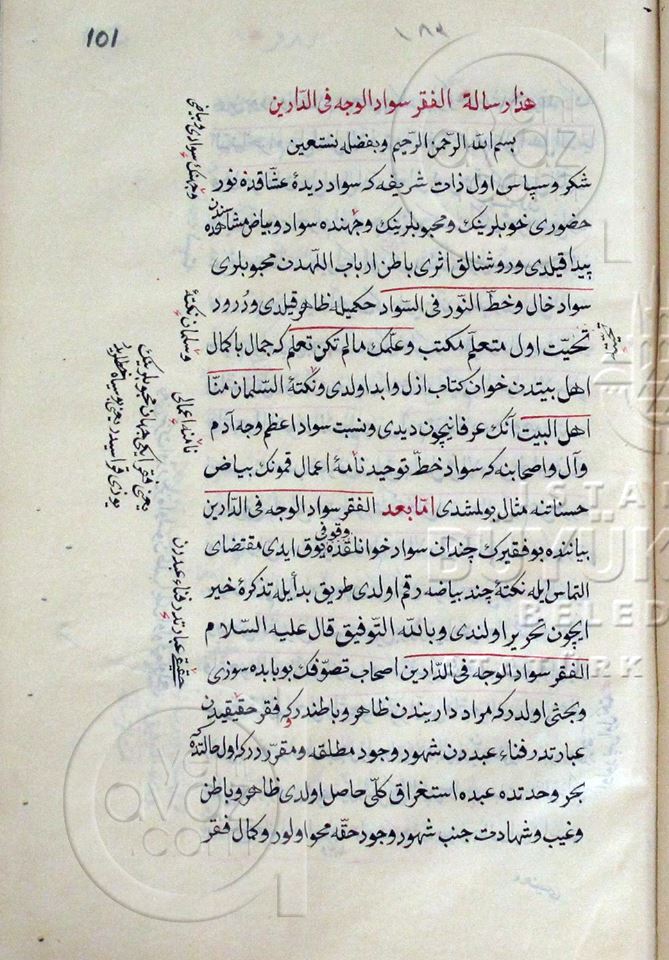 101
١٨٣
هذا رسالة الفقر سواد الوجه فى الدّارين
بسم الله الرّحمن الرّحيم وبفضله نستعين
شكر وسپاس اول ذات شريفه كه سواد ديدهٔ عشّاقده نور
حضورى خوبلرينك ومحبوبلرينك وجهنده سواد وبياض مشاهده سندن
پيدا قيلدى وروشنالق اثرى باطن ارباب اللّهدن محبوبلرى
سواد خال وخطّ النّور فى السّواد حكميله ظاهر قيلدى ودرود
تحيّت اول متعلّم مكتب وعلّمك مالم تكن تعلم كه جمال باكمال
اهل بيتدن خوان كتاب ازل وابد اولدى ونكتهٔ السّلمان منّا
اهل البيت آنك عرفانيچون ديدى ونسبت سواد اعظم وجه آدم
وآل واصحابنه كه سواد خطّ توحيد نامهٔ اعمال قمونك بياض
حسناتنه مثال بولمشدى امّا بعد الفقر سواد الوجه فى الدّارين
بياننده بو فقيرك چندان سواد خوانلقده وقوفى يوق ايدى مقتضاى
التماس ايله نكتهٔ چند بياضه رقم اولدى طريق بدأيله تذكرهٔ خير
ايچون تحرير اولندى وبالله التّوفيق قال عليه السّلام
الفقر سواد الوجه فى الدّارين اصحاب تصوّفك بو بابده سوزى
وبحثى اولدر كه مراد دارين دن ظاهر وباطندر كه فقر حقيقيدن
عبارتدر فناء عبد رن شهود وجود مطلقه ومقرّر در كه اول حالتده
بحر وحدتده عبده استغراق كلّى حاصل اولدى ظاهر وباطن
وغيب وشهادت جنب شهود وجود حقّه محو اولور وكمال فقر
وجهنك سوادى وبياضى
وسلمان نكتهٔ
نامهٔ اعمالى
يعنى فقر ايكى جهان محبوبلرينك
يوزى قراسيدر يعنى
حقيقى عبارتدر فناء عبد رن